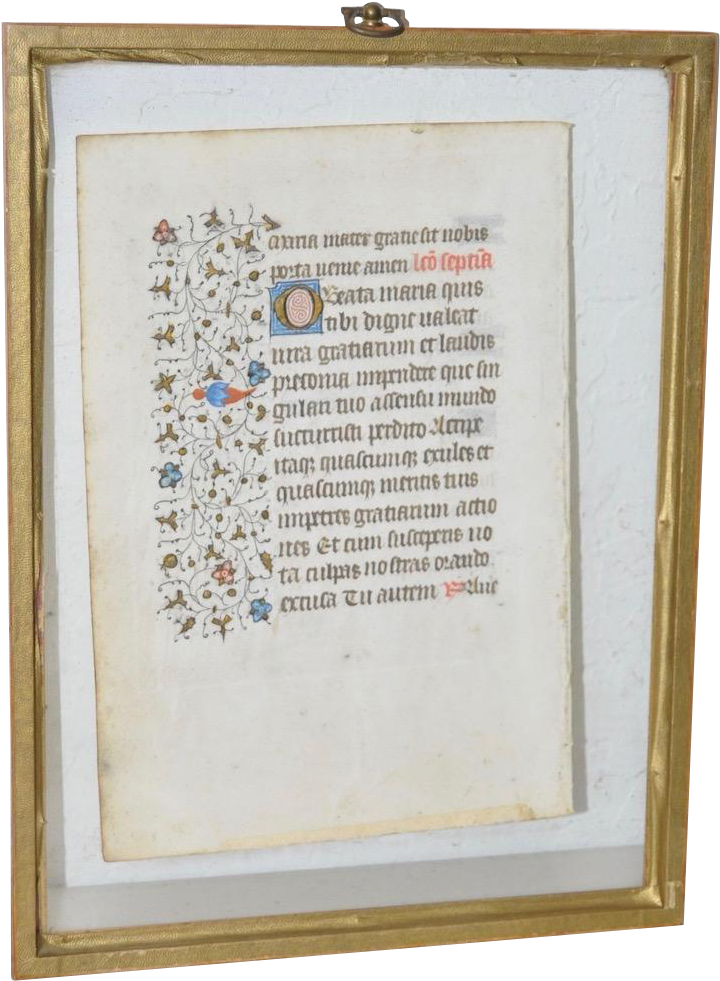 Maria mater gratie sit nobis
porta venie amen leō septīa
O Beata maria quis
tibi digne valeat
iura gratiarum et laudis
preconia impendere que sin
gulari tuo assensu mundo
succurristi perdito Accipe
itaqꝫ quascumqꝫ exiles et
quascumqꝫ meritis tuis
impetres gratiarum actio
nes Et cum susceperis no
stras culpas nostras orando
excusa Tu autem ℟ Aue